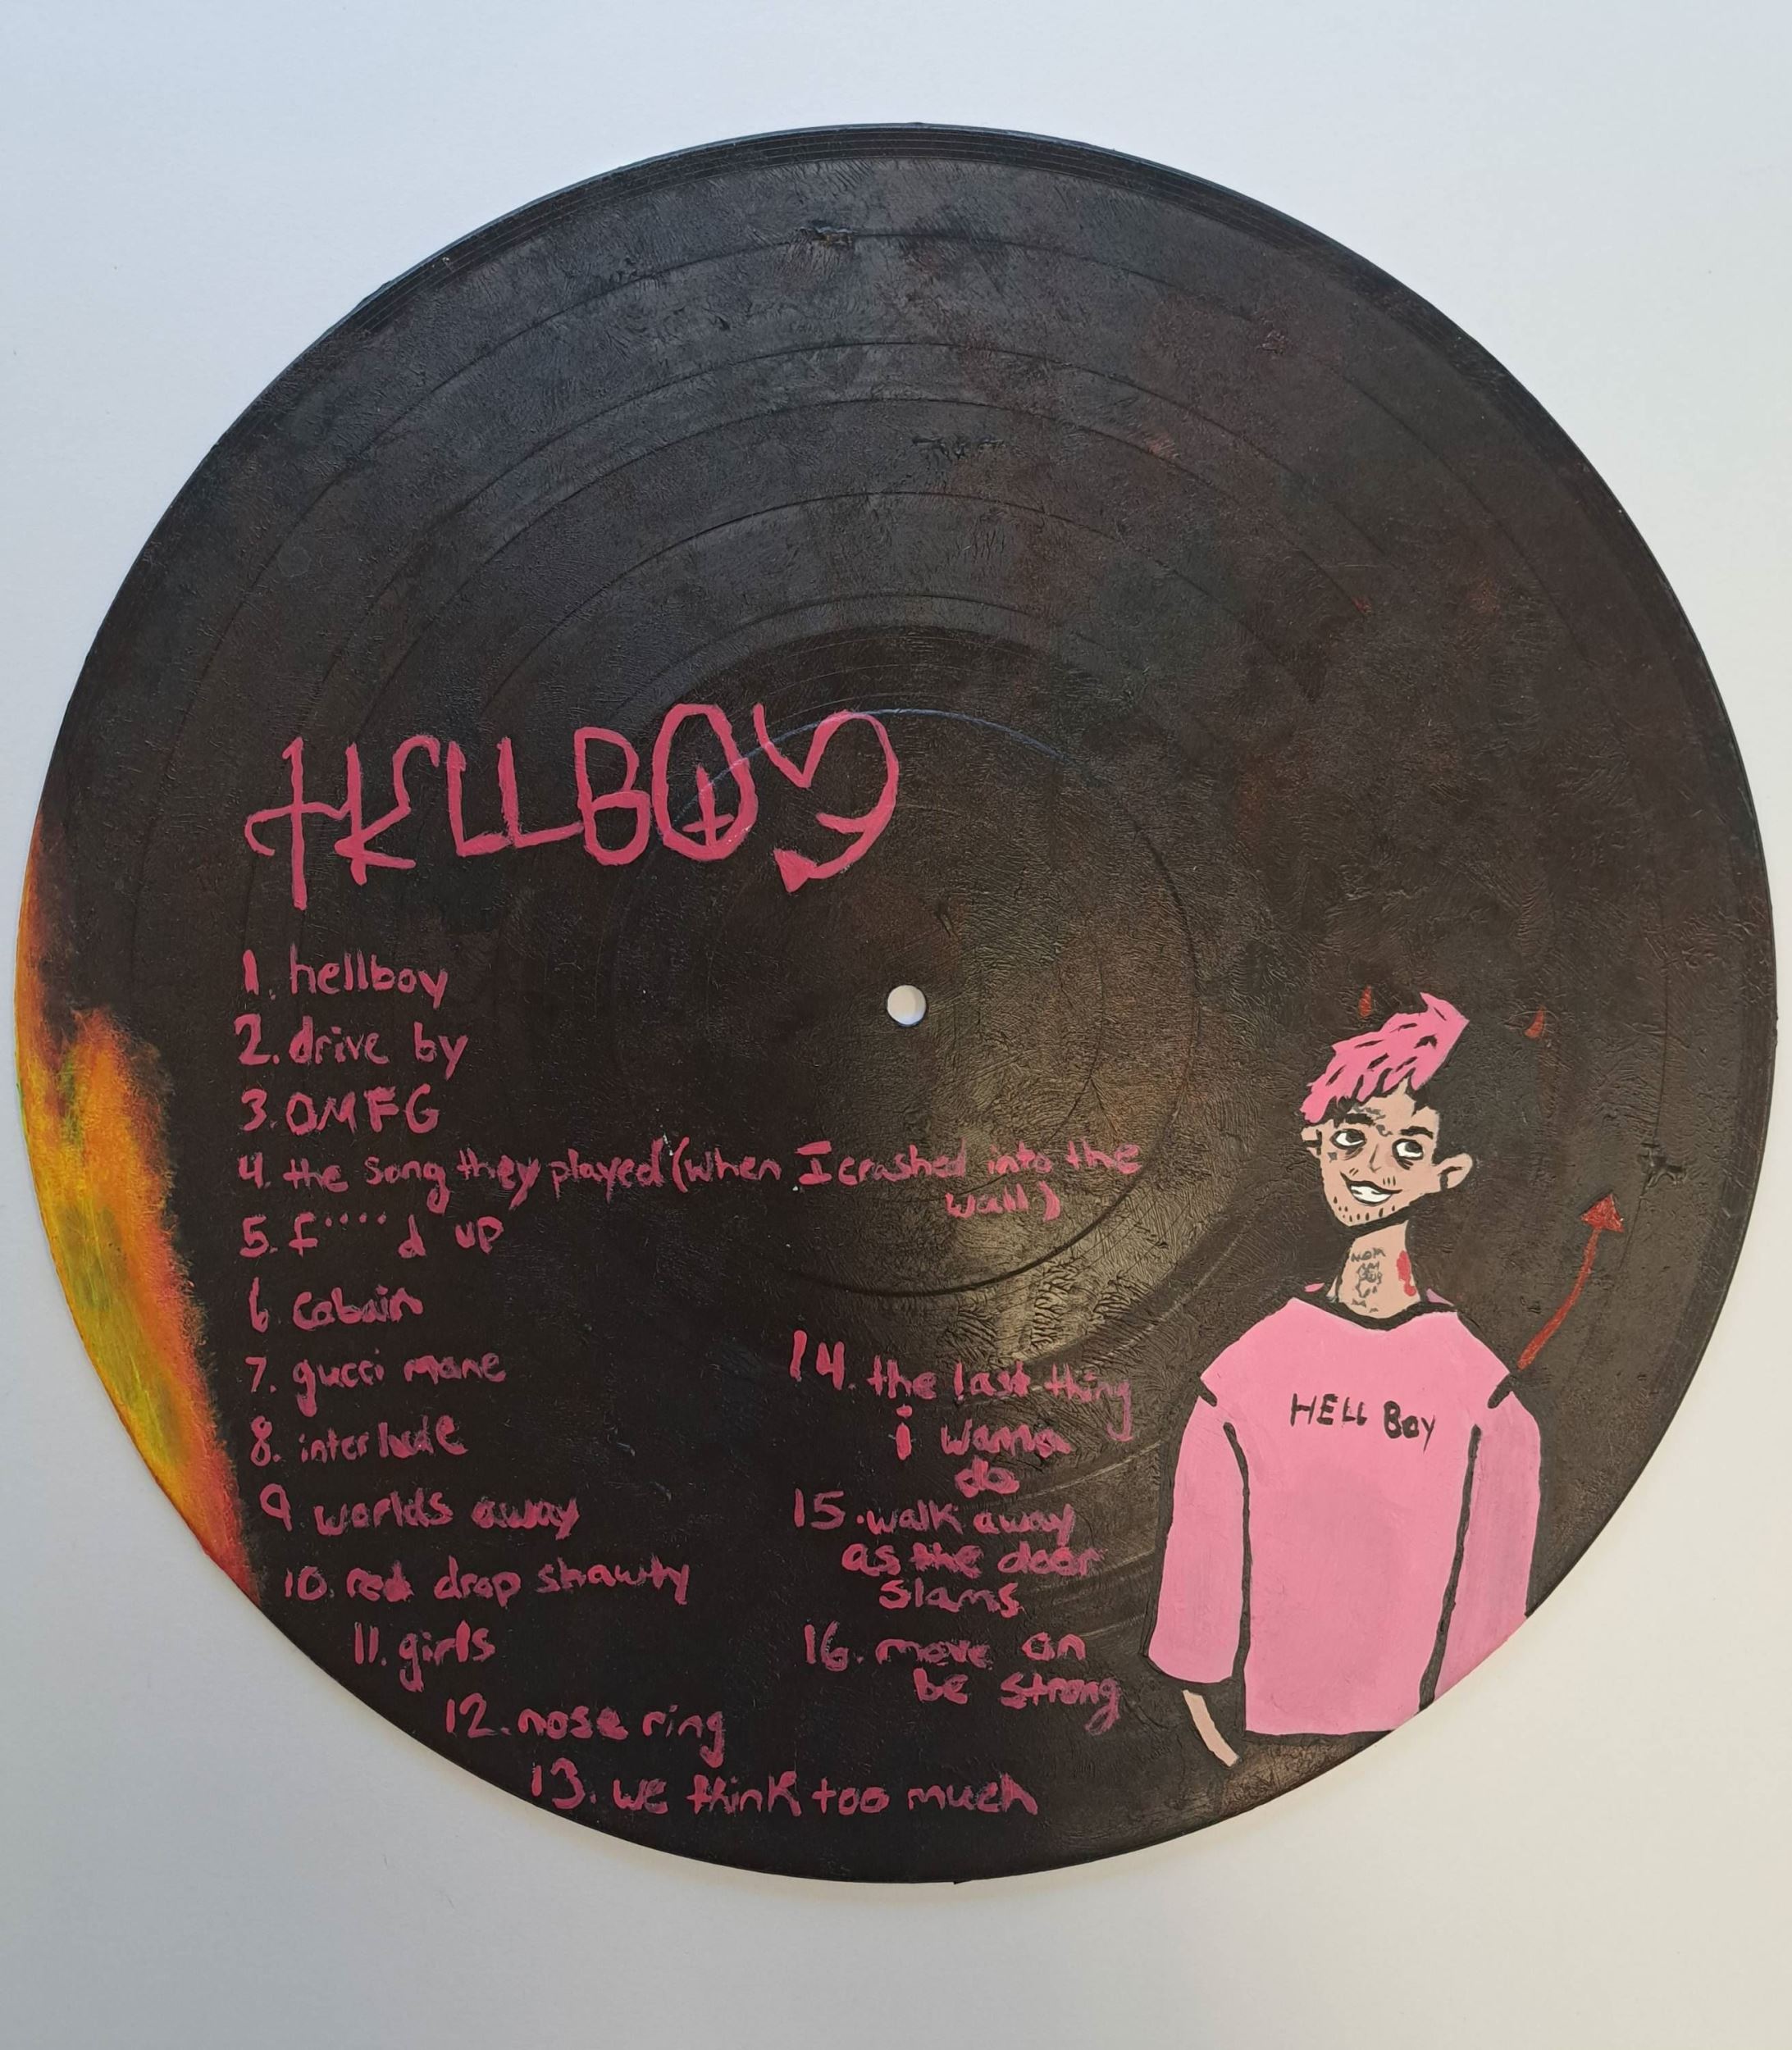 HELLBOY
1. hellboy
2. drive by
3. OMFG
4. the song they played (when I crashed into the
wall)
5. f····d up
6 cobain
7. gucci mane
8. interlude
9. worlds away
10. red drop shawty
11. girls
12. nose ring
13. we think too much
14. the last thing
i wanna
do
15. walk away
as the door
slams
16. move on
be strong
HELL BOY